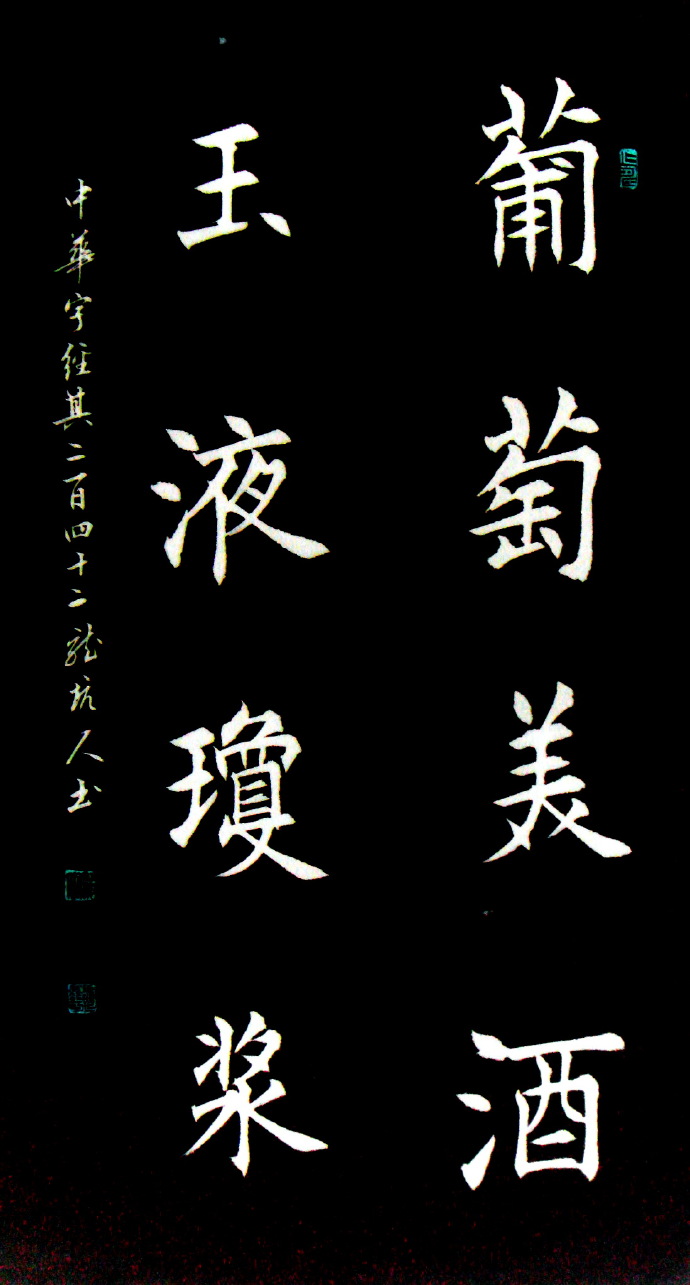 葡萄美酒
玉液瓊浆
中華字经其二百四十二龙坑人书